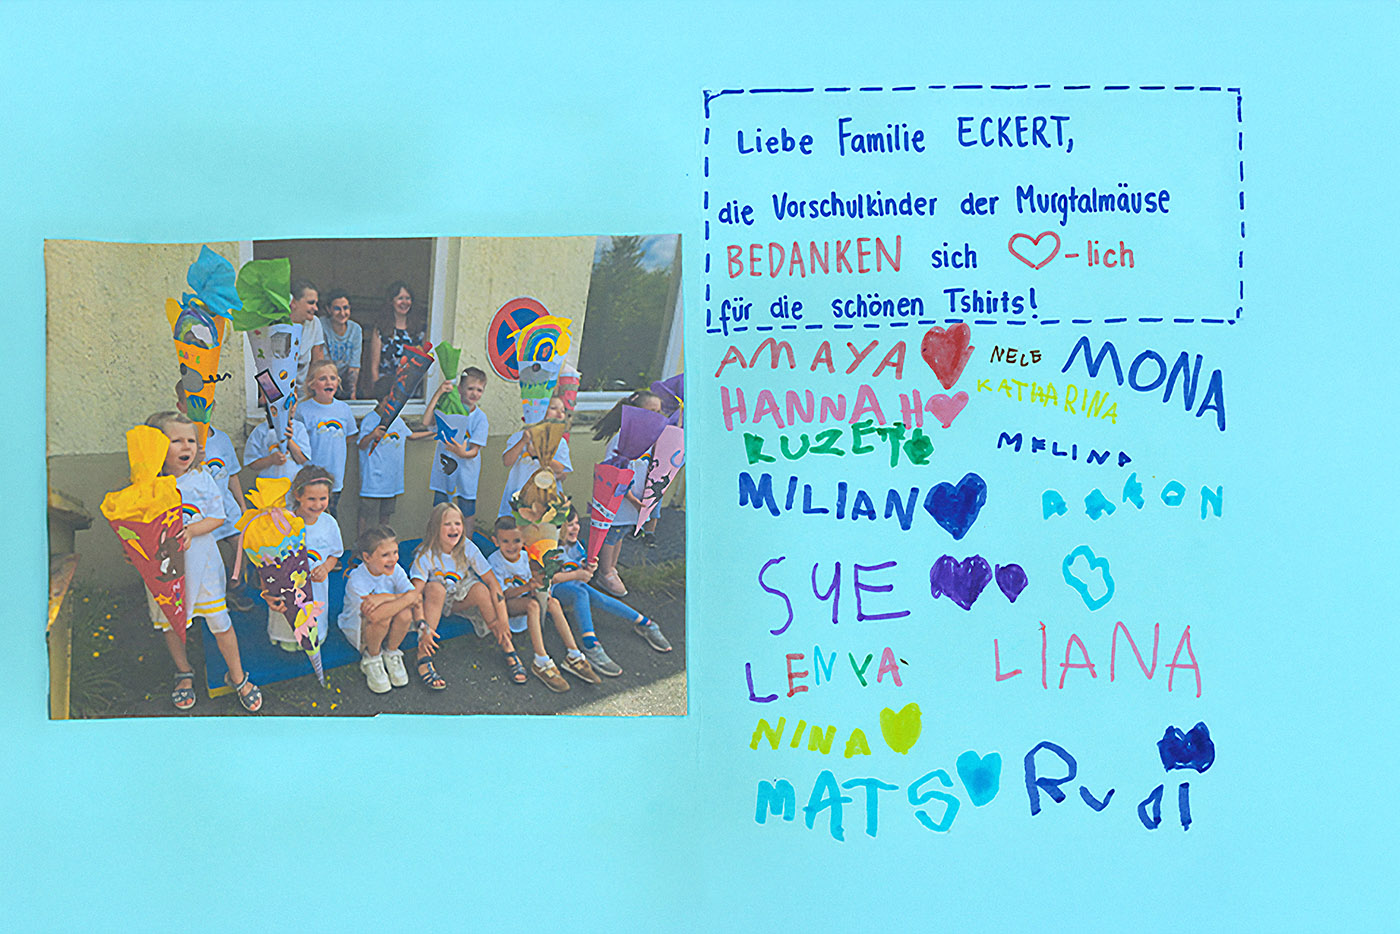 Liebe Familie ECKERT,
die Vorschulkinder der Murgtalmäuse
BEDANKEN sich ♡-lich
für die schönen Tshirts!
AMAYA NELE MONA
HANNAH KATHARINA
KUZEY MELINA
MILIAN AARON
SYE
LENYA LIANA
NINA
MATS Rudi